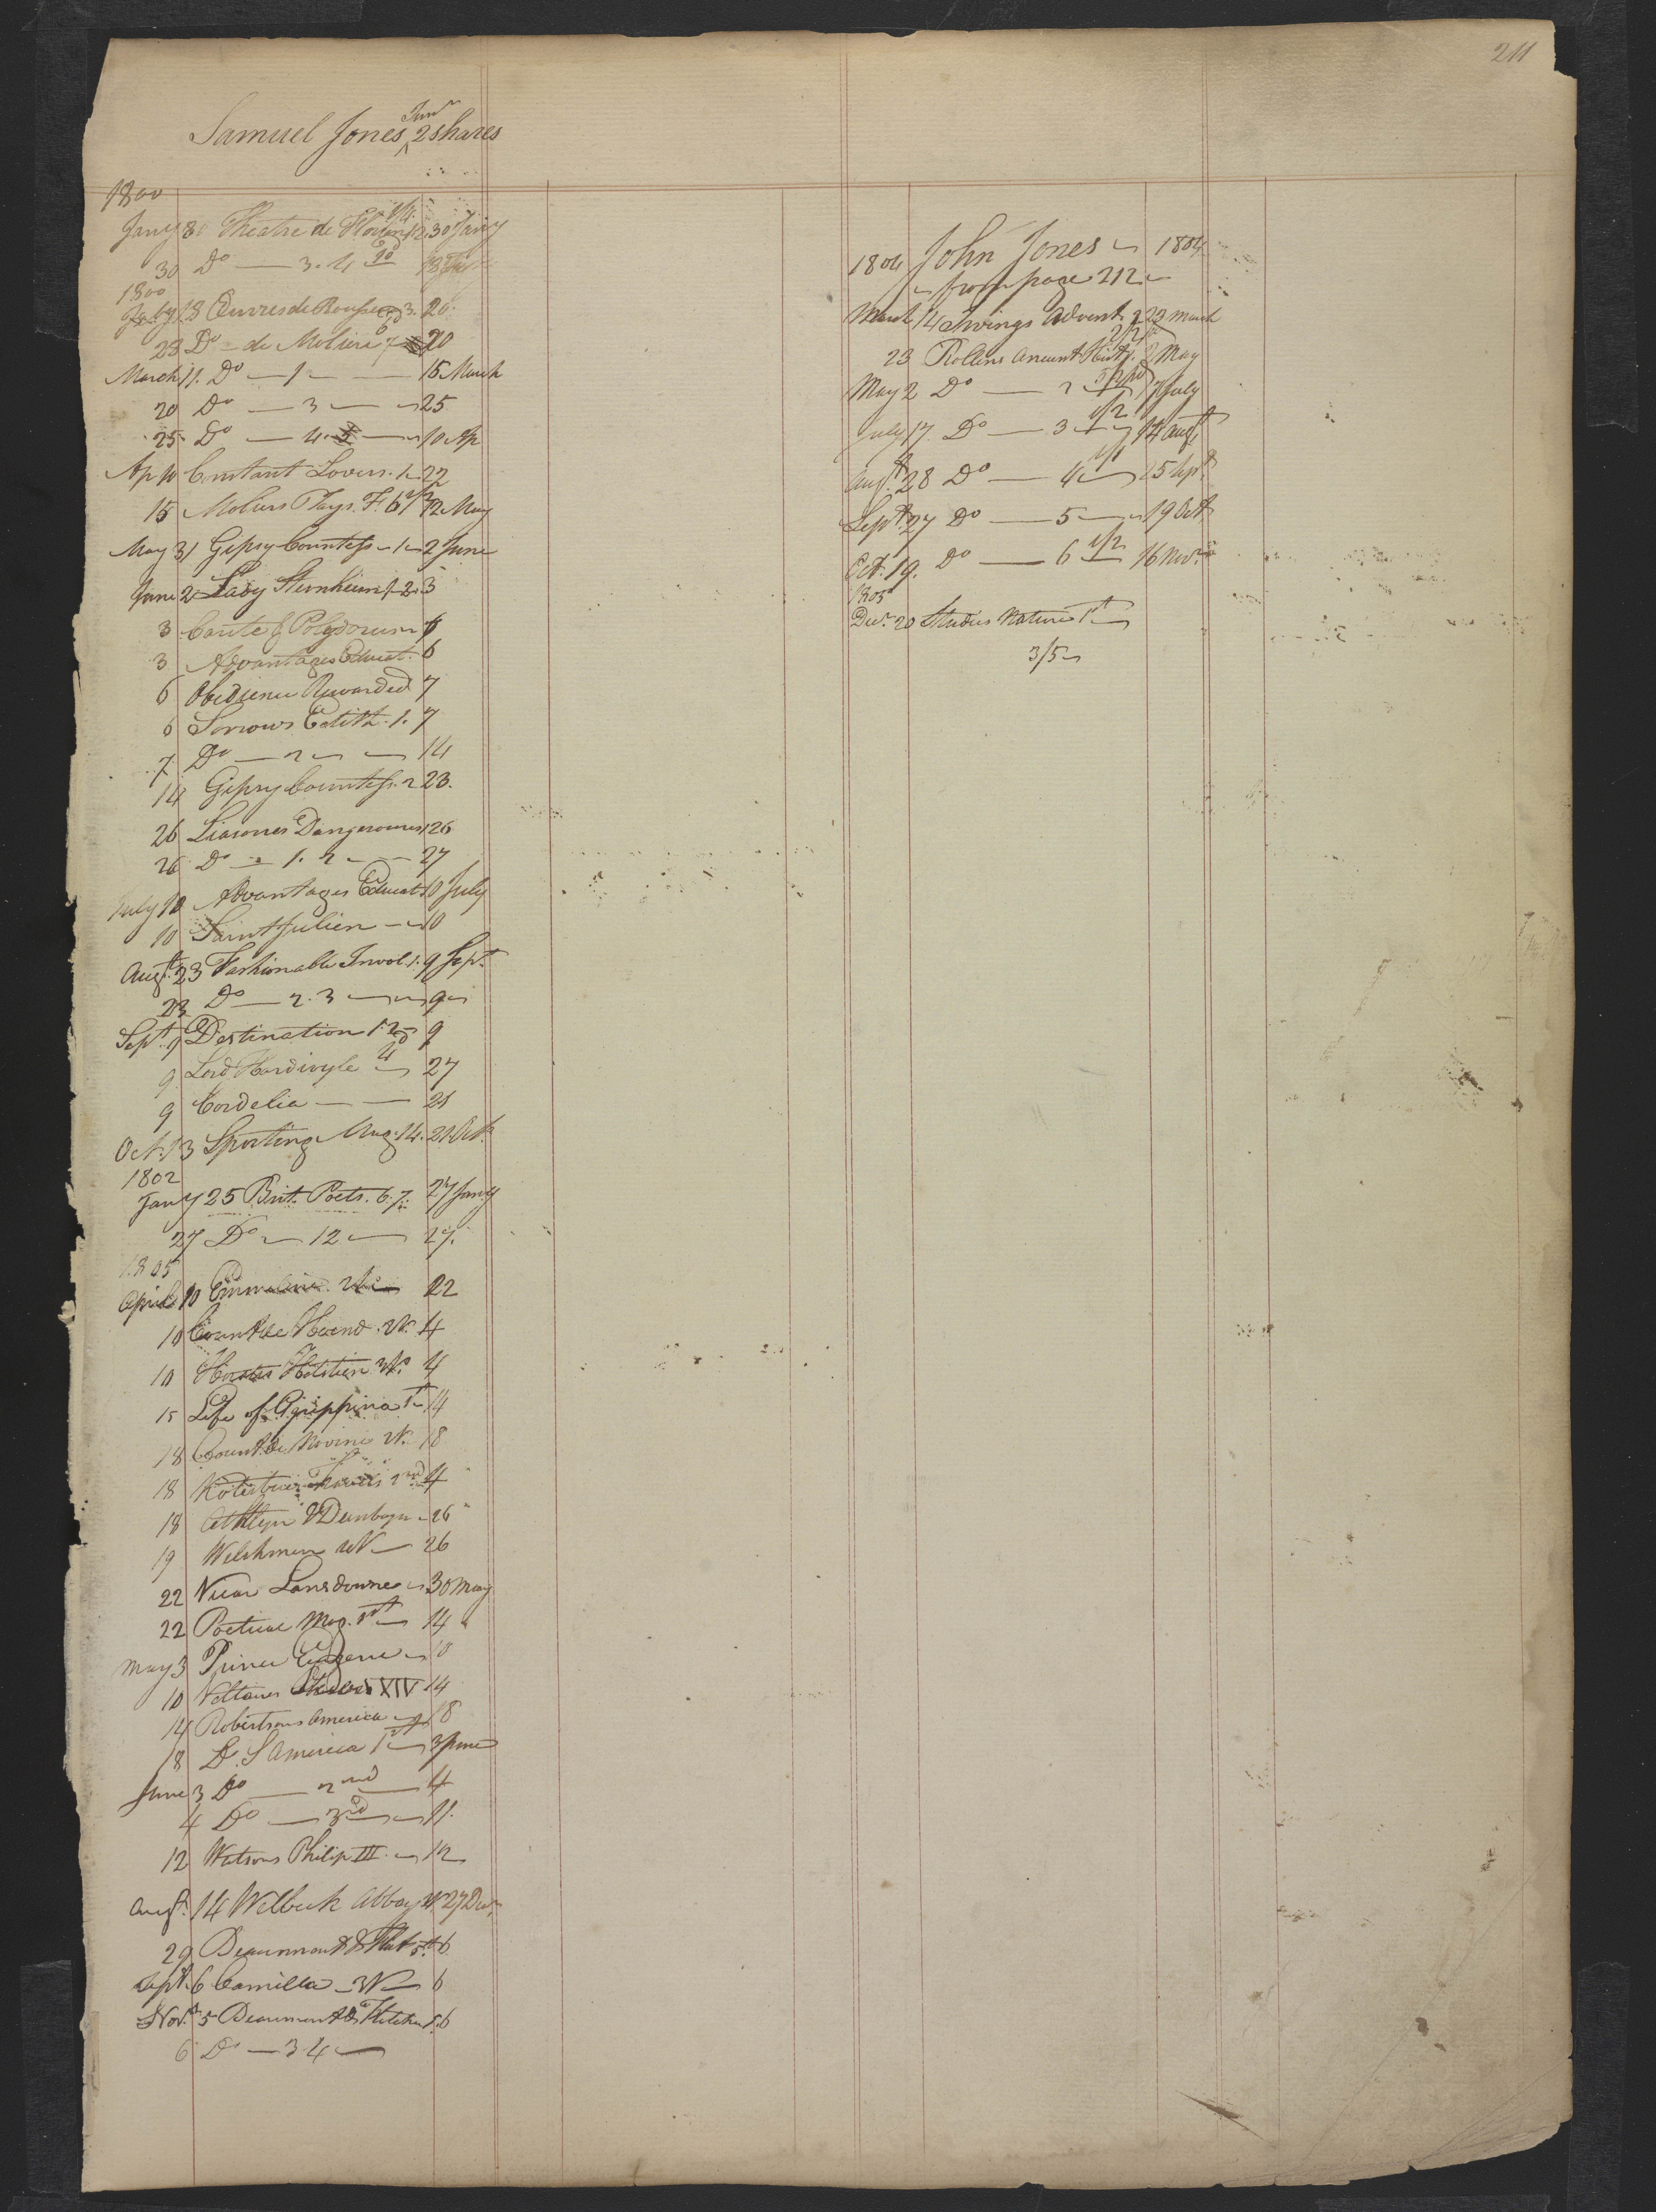 211
Samuel Jones Junr 2 shares
1800
Jany 30 Theatre de Florian 1.2. 30 Jany
30 Do — 3. 4
1800
Feby 18 Œuvres de 3. 20
23 Do — de Moliere 7 20
March 11. Do — 1 — 15 March
20 Do — 3 — 25
25 Do — 4. 5 — 10 Ap
Ap 10 Constant Lovers. 1 22
15 Moliers Plays. F. 6 12 May
May 31 Gipsy Countess — 1 — 2 June
June 2 Lady Sternheim 1. 2. 3
3 Cante & Polydorus
3 Advantages Educat. 6
6 Obedience Rewarded 7
6 Sorrows Edith. 1. 7
7 Do — 2 — 14
14 Gipsy Countess. 2 23.
26 Liasones Dangerouses 26
26 Do — 1. 2 — 27
July 10 Advantages Educat 10 July
10 Saint Julien — 10
Augt. 23 Fashionable Invol. 1. 9 Sept.
23 Do — 2. 3 — 9
Sept. 9 Destination 1. 2 9
9 Lord Hardivyle 27
9 Cordelia — 21
Oct. 13 Sporting Mag. 14. 21 Oct.
1802
Jany 25 Brit. Poets. 6. 7. 27 Jany
27 Do — 12 — 27.
1805
April 10 Emmeline 22
10 Count de 4
10 Holstein 4
15 Life of Agrippina 1st 14
18 Count de 18
18 2nd 4
18 26
19 Welshmen — 26
22 Vicar Lansdowne — 30 May
22 Poetical Mag. 1st 14
May 3 Prince Eugene — 10
10 Voltaires XIV 14
14 Robertsons America — 18
18 Do. S America 1st 3 June
June 3 Do — 2nd — 4
4 Do — 3rd — 11.
12 Watsons Philip III. — 12
Augt. 14 Welbeck Abbey 27 Decr.
29 Beaumont & Flet 5th 6
Sept. 6 Camilla — 6
Novr. 5 Beaumont & Fletcher 1. 6
6 Do — 3 4 —
1804 John Jones — 1804
— from page 212 —
March 14 Irvings Advent. 2 22 March
23 Rollins Ancient Hist 1. 2 May
May 2 Do — 2 — 17 July
July 17 Do — 3 — 14 augt
augt. 28 Do — 4 — 15 Sept.
Sept. 27 Do — 5 — 19 Oct
Oct. 19. Do — 6 — 16 Novr.
1805
Decr. 20 Studies Nature 1st
3/5